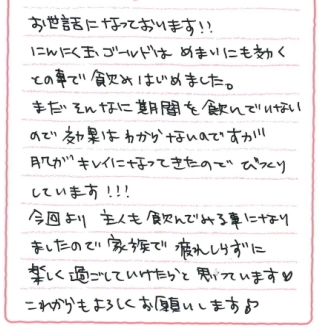 お世話になっております!!
にんにく玉ゴールドは めまいにも効く
との事で 飲みはじめました。
まだ そんなに期間を飲んでいない
ので 効果はわからないのですが
肌がキレイになってきたので びっくり
しています!!!
今回より 主人も飲んでみる事になり
ましたので 家族で 疲れしらずに
楽しく過ごしていけたらと 思っています♡
これからもよろしくお願いします♪